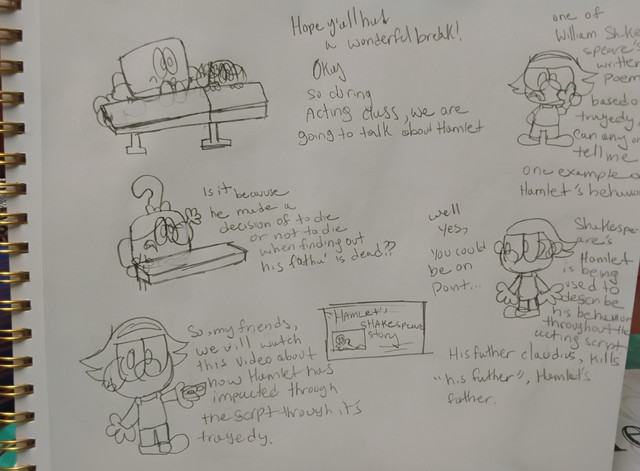 Hope y'all had
a wonderful break!
Okay
so during
Acting class, we are
going to talk about Hamlet
one of
William Shake
speare's
written
Poem
based on
tragedy,
can any on
tell me
one example o
Hamlet's behavio
Is it because
he made a
decision of to die
or not to die
when finding out
his father is dead??
well
Yes,
You could
be on
point...
Shakespe
are's
Hamlet
is being
used to
describe
his behavior
throughout the
acting script
His father claudius, kills
"his father", Hamlet's
father.
So, my friends,
we will watch
this video about
how Hamlet has
impacted through
the script through it's
tragedy.
HAMLET'S
SHAKESPEARE
story